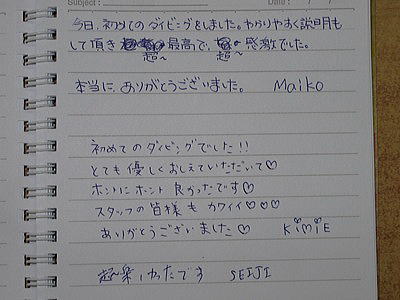 Subject:
Date: / /
今日、初めてのダイビングをしました。わかりやすく説明も
して頂き 最高で、感激でした。
超〜 超〜
本当に、ありがとうございました。 Maiko
初めてのダイビングでした!!
とても優しくおしえていただいて♡
ホントにホント良かったです♡
スタッフの皆様もカワイイ♡♡♡
ありがとうございました♡ KimiE
超楽しかったです SEIJI